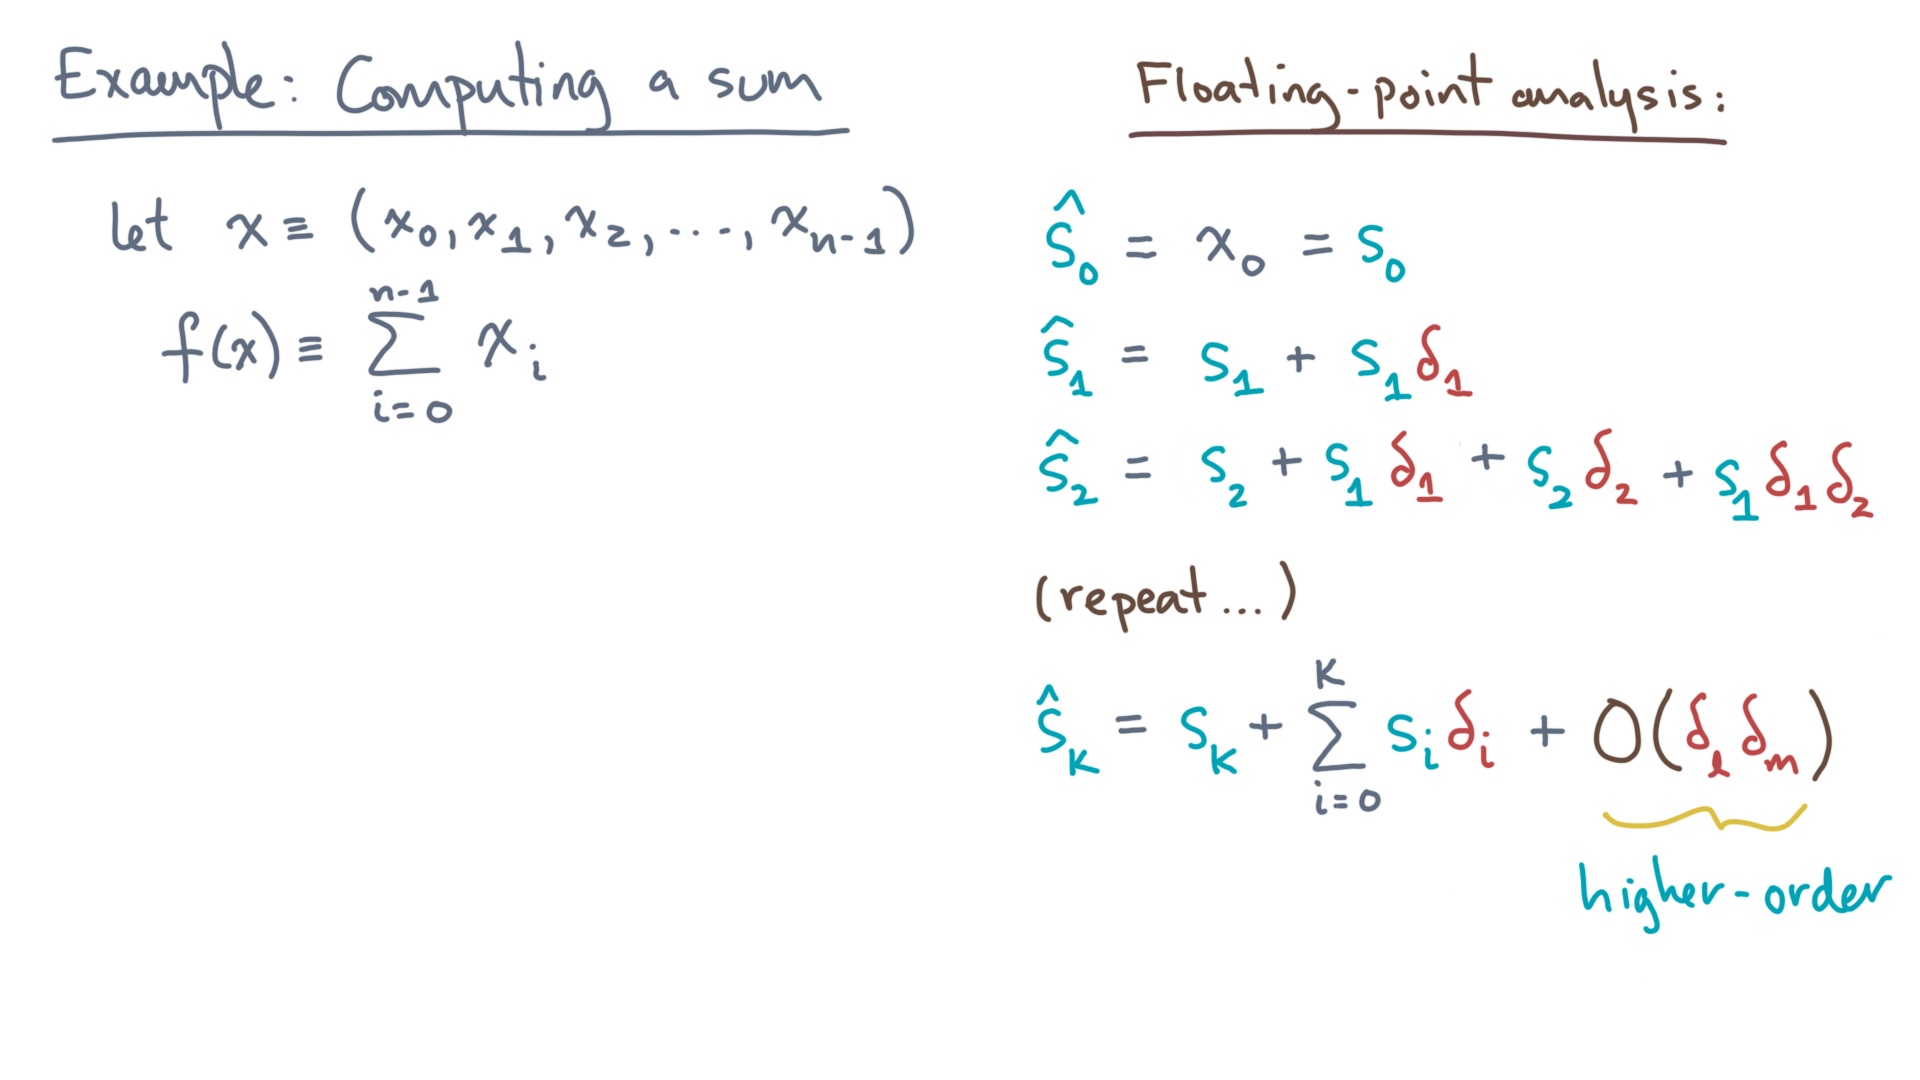 Example: Computing a sum
let x ≡ (x₀, x₁, x₂, ..., xₙ₋₁)
n-1
f(x) ≡ ∑ xᵢ
i=0
Floating-point analysis:
ŝ₀ = x₀ = s₀
ŝ₁ = s₁ + s₁δ₁
ŝ₂ = s₂ + s₁δ₁ + s₂δ₂ + s₁δ₁δ₂
(repeat...)
k
ŝₖ = sₖ + ∑ sᵢδᵢ + O(δₗδₘ)
i=0
higher-order